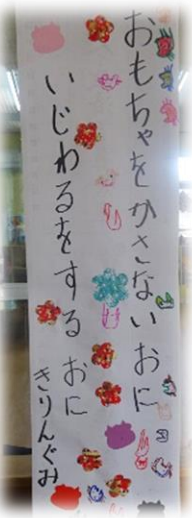 おもちゃをかさないおに
いじわるをする おに
きりんぐみ